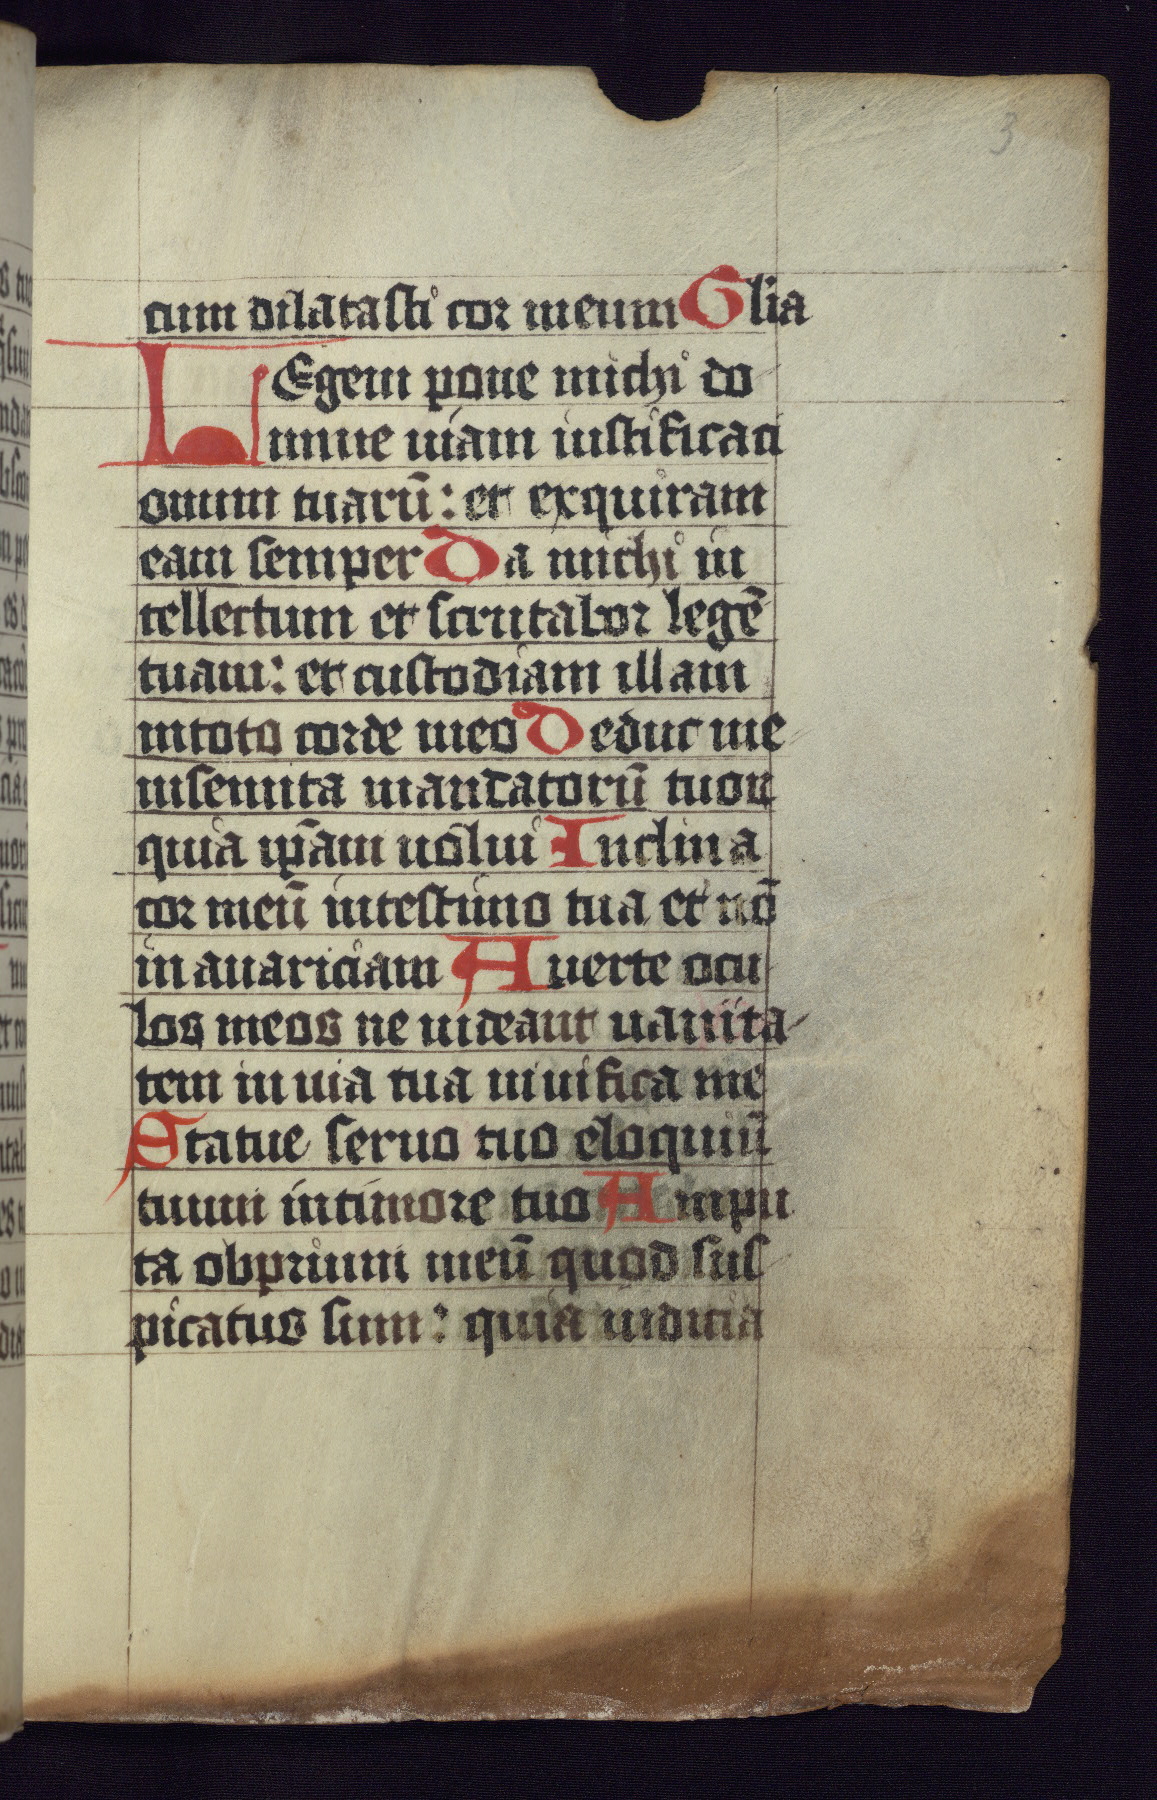 3
cum dilatasti cor meum Glia
LEgem pone michi do
mine uiam iustificaci
onum tuarū: et exquiram
eam semper Da michi in
tellectum et scrutabor legē
tuam: et custodiam illam
in toto corde meo Deduc me
in semita mandatorū tuoꝝ
quia ip̄am uolui Inclina
cor meū in testimo tua et nō
in auariciam Auerte ocu
los meos ne uideant uanita
tem in uia tua uiuifica me
Statue seruo tuo eloquiū
tuum in timore tuo Ampu
ta obprium meū quod sus
picatus sum: quia iudicia